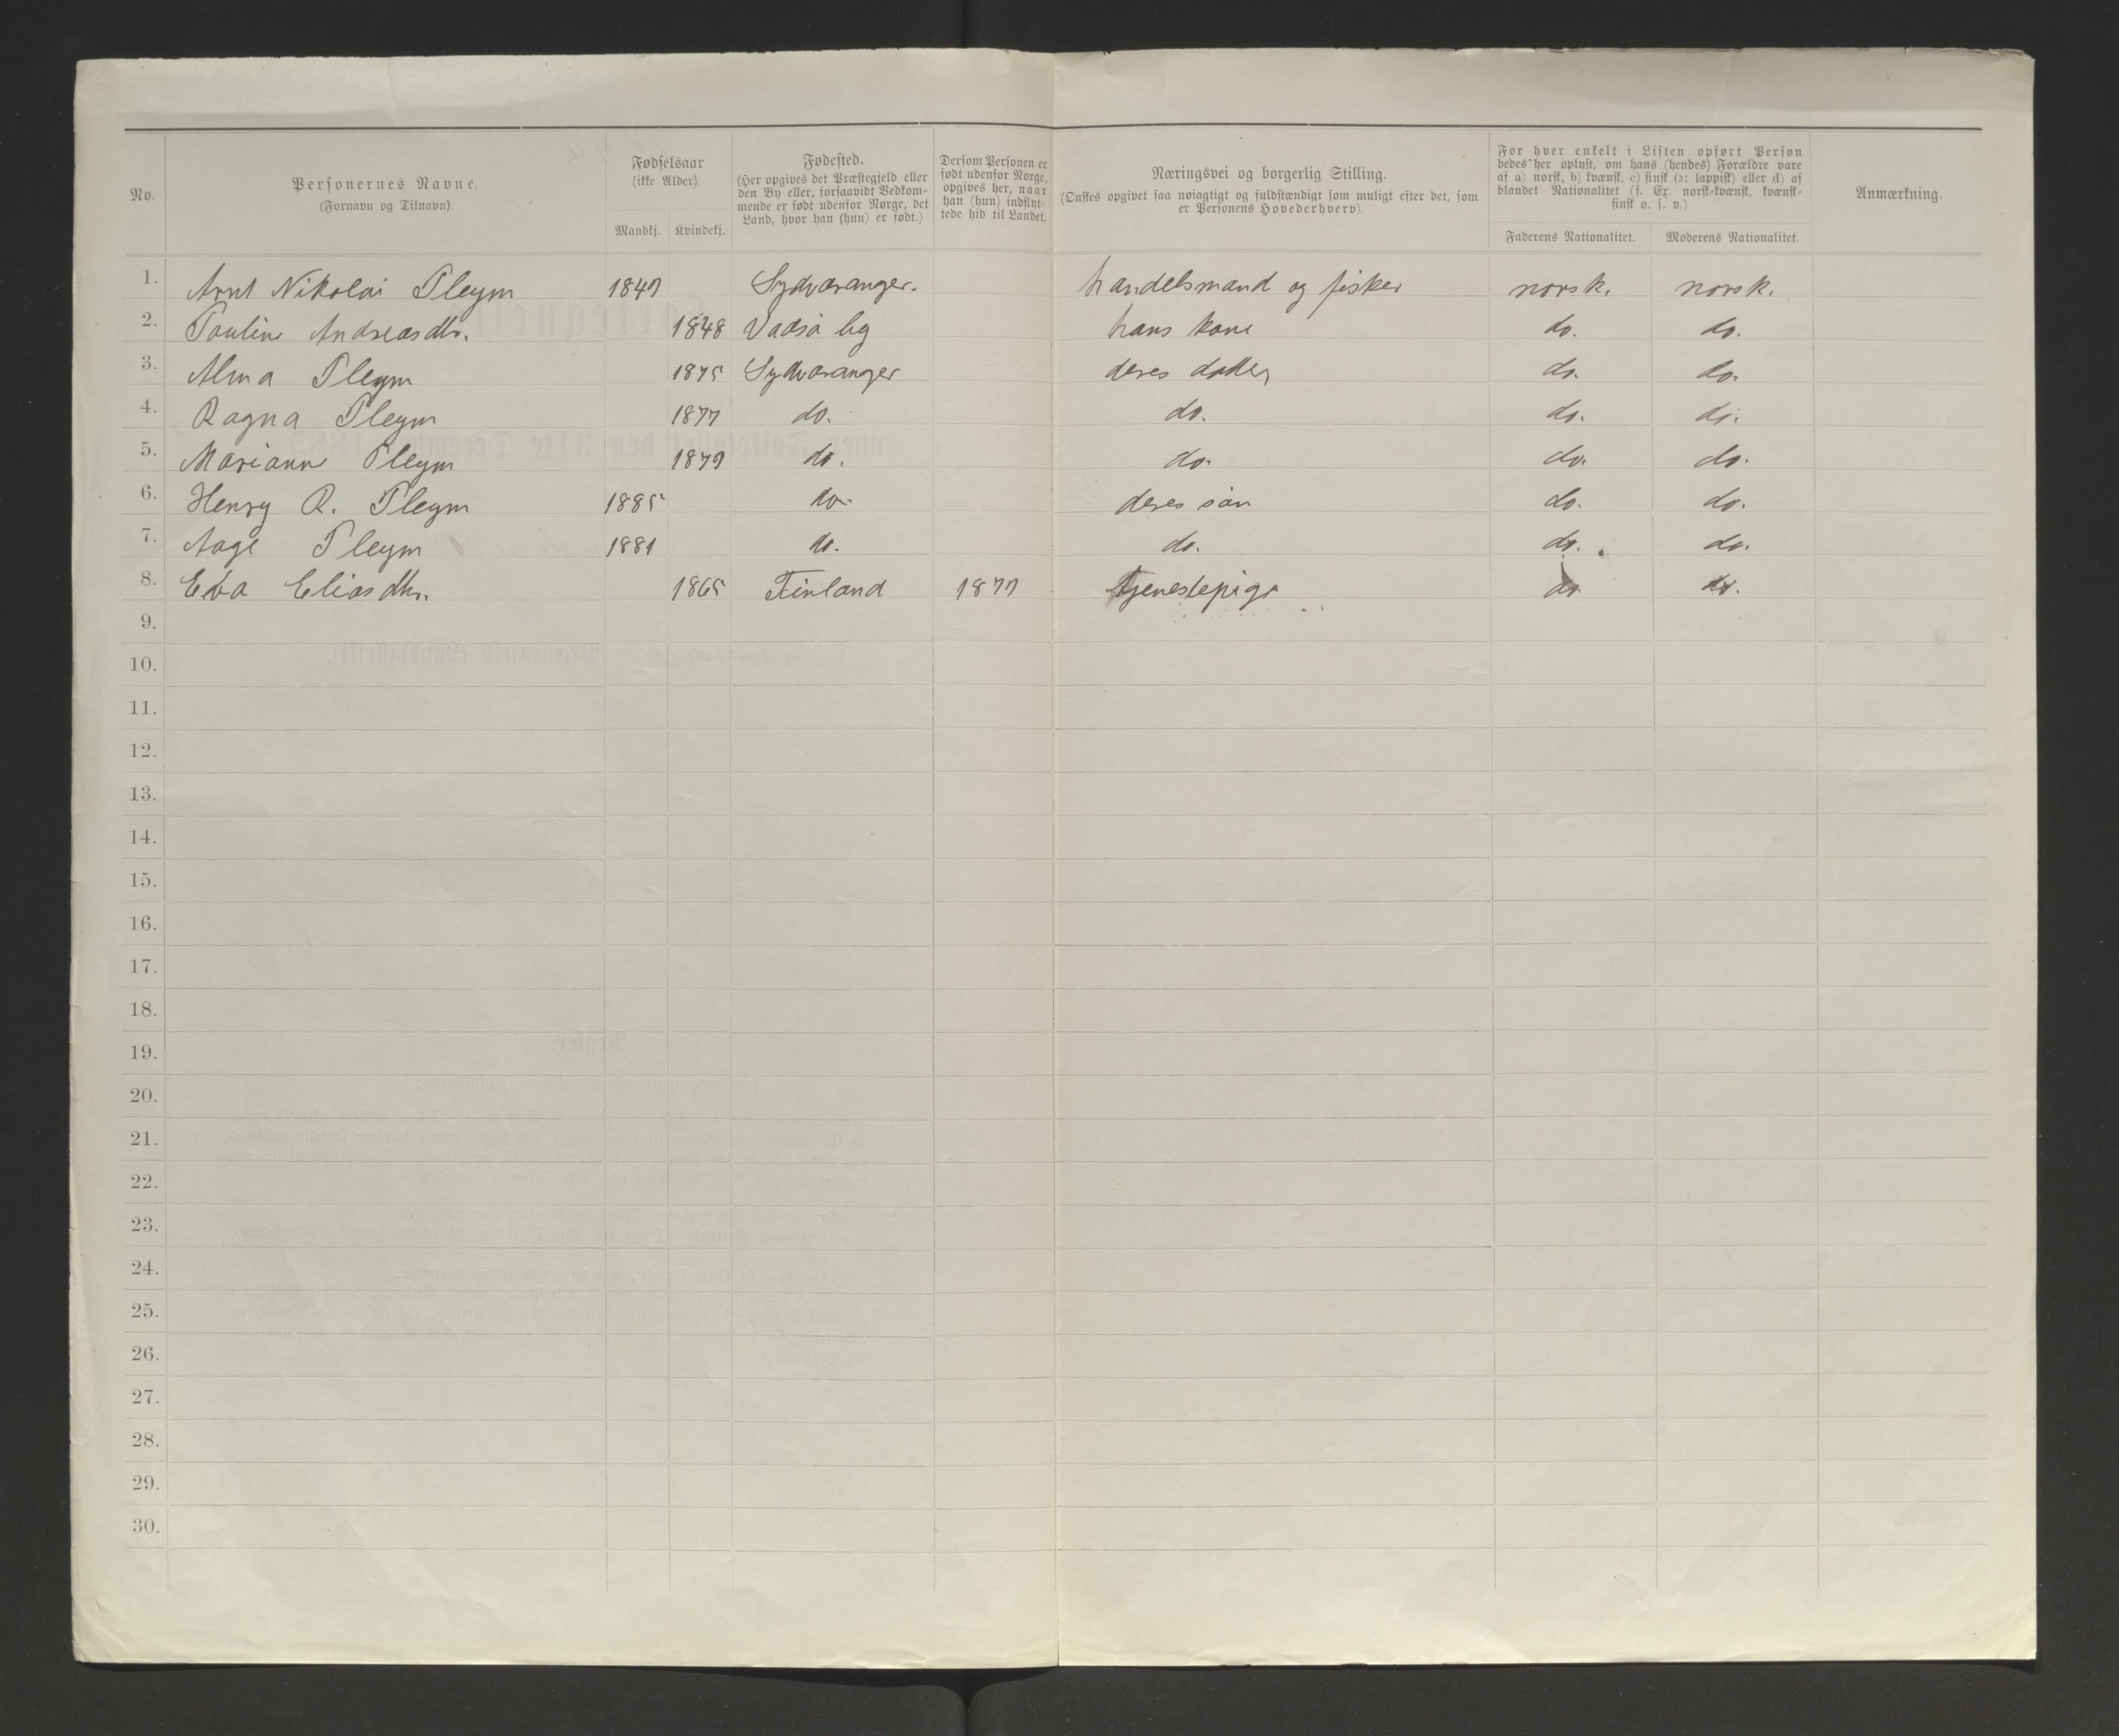 No.
Personernes Navne.
(Fornavn og Tilnavn)
Fødselsaar
(ikke Alder).
Mandkj.
Kvindekj.
Fødested.
(Her opgives det Præstegjeld eller
den By eller, forsaavidt Vedkom-
mende er født udenfor Norge, det
Land, hvor han (hun) er født.)
Dersom Personen er
født udenfor Norge,
opgives her, naar
han (hun) indflyt-
tede hid til Landet.
Næringsvei og borgerlig Stilling.
(Ønskes opgivet saa nøiagtigt og fuldstændigt som muligt efter det, som
er Personens Hovederhverv).
For hver enkelt i Listen opført Person
bedes her oplyst, om hans (hendes) Forældre vare
af a) norsk, b) kvænsk, c) finsk (ɔ: lappisk) eller d) af
blandet Nationalitet (f. Ex. norsk-kvænsk, kvænsk-
finsk o. s. v.)
Faderens Nationalitet.
Moderens Nationalitet.
Anmærkning.
1. Arnt Nikolai Pleym 1849 Sydvaranger. handelsmand og fisker norsk. norsk.
2. Pauline Andreasdtr. 1848 Vadsö by hans kone do. do.
3. Alma Pleym 1875 Sydvaranger deres datter do. do.
4. Ragna Pleym 1877 do. do. do. do.
5. Mariann Pleym 1879 do. do. do. do.
6. Henry R. Pleym 1885 do. deres sön do. do.
7. Aage Pleym 1881 do. do. do. do.
8. Eva Eliasdtr. 1865 Finland 1877 tjenestepige do. do.
9.
10.
11.
12.
13.
14.
15.
16.
17.
18.
19.
20.
21.
22.
23.
24.
25.
26.
27.
28.
29.
30.